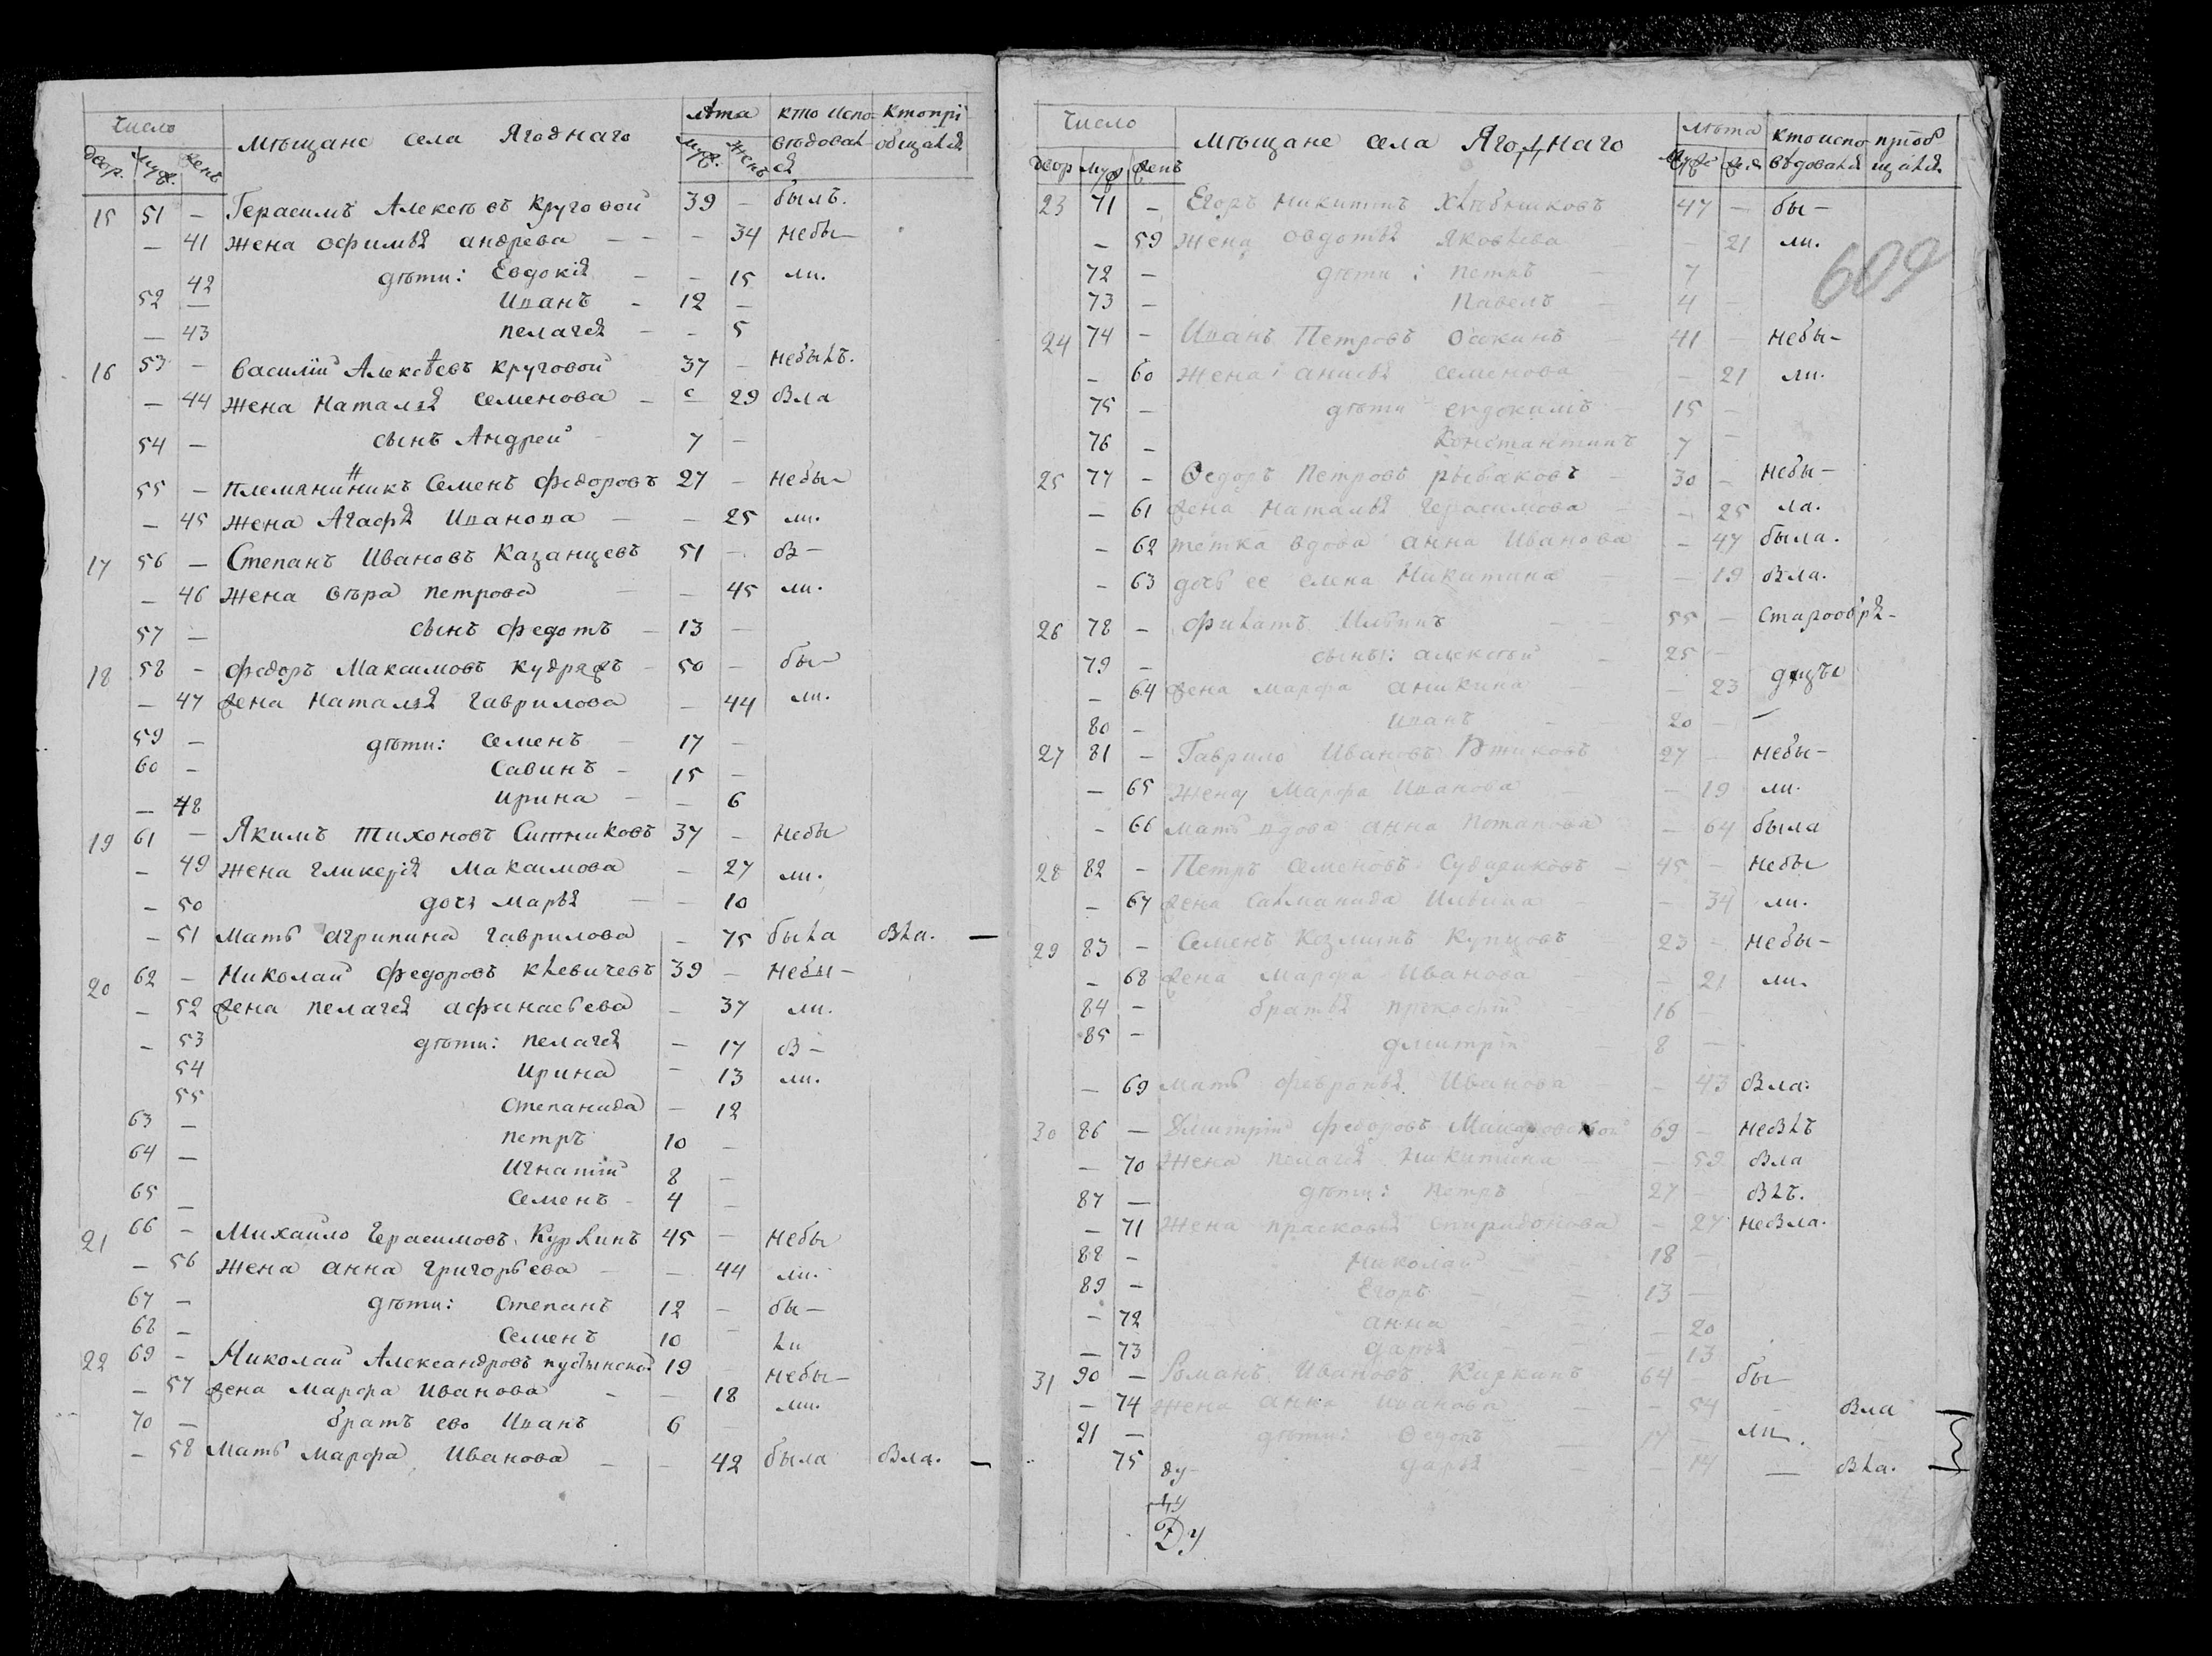 Число Мѣщане села Ягоднаго Лѣта кто испо- кто прі
двор. муж. жен муж. жень вѣдовал ся общался
15 51 – Герасимъ Алексѣевъ Круговой 39 – былъ.
– 41 жена Офимья андрева – – – 34 небы–
42 дѣти: Евдокія – – 15 ли.
52 – Иванъ – 12 –
– 43 пелагея – – 5
16 53 – Василій Алексѣевъ круговой 37 – небылъ.
– 44 жена Наталья семенова – – 29 была
54 – сынъ Андрей 7 –
55 – племянинникъ Семенъ Федоровъ 27 – небы–
– 45 жена Агафья Иванова – – 25 ли.
17 56 – Степанъ Ивановъ Казанцевъ 51 – бы–
– 46 жена вѣра петрова – 45 ли.
57 – сынъ федотъ – 13 –
18 58 – федоръ Максимовъ кудряв – 50 – бы–
– 47 жена Наталья гаврилова – 44 ли.
59 – дѣти: семенъ – 17 –
60 – Савинъ – 15 –
– 48 ирина – – 6
19 61 – Якимъ тихоновъ Ситниковъ 37 – небы
– 49 жена гликерія Максимова – 27 ли.
– 50 дочь марья – – 10
– 51 Мать агрипина гаврилова – 75 была была. –
20 62 – Николай федоровъ клевичевъ 39 – небы–
– 52 жена пелагея афинасьева – 37 ли.
– 53 дѣти: пелагея – 17 бы–
54 ирина – 13 ли.
55 степанида – 12
63 – петръ 10 –
64 – игнатій 8 –
65 – семенъ – 4 –
21 66 – Михаило герасимовъ Куркинъ 45 – небы
– 56 жена анна григорьева – – 44 ли.
67 – дѣти: степанъ 12 – бы–
68 – семенъ 10 – ли
22 69 – Николай Александровъ пустынской 19 небы–
– 57 жена марфа иванова – – 18 ли.
70 – братъ ево Иванъ 6 –
– 58 Мать марфа Иванова – – 42 была была. –
Число Мѣщане села Ягоднаго Лѣта кто испо- пріоб
двор муж жень муже же вѣдовался щался
609
23 71 – Егоръ никитинъ хлѣбниковъ 47 – бы–
– 59 жена овдотья яковлева – 21 ли.
72 – дѣти: петръ – 7
73 – павелъ – 4 –
24 74 – Иванъ Петровъ Осокинъ – 41 – небы–
– 60 жена анисья семенова – 21 ли.
75 – дѣти евдокимъ – 15 –
76 – Константинъ 7 –
25 77 – Ѳедоръ петровъ рыбаковъ – 30 – небы–
– 61 жена Наталья герасимова – – 25 ла.
– 62 тетка вдова анна Иванова – 47 была.
– 63 дочь ее елена Никитина – – 19 была.
26 78 – филатъ Ильинъ – – 55 – старообря-
79 – сыны: алексѣй – 25 –
– 64 жена марфа аникина – 23 дцы
80 – иванъ – – 20 – –
27 81 – Гаврило Ивановъ Птиковъ 27 – небы–
– 65 жена Марфа Иванова – – 19 ли.
– 66 мать вдова анна потапова – 64 была
28 82 – Петръ Семеновъ Судариковъ – 45 – небы
– 67 жена Ильина – 34 ли.
29 83 – Семенъ Козминъ Купцовъ 23 – небы–
– 68 жена марфа Иванова – 21 ли.
84 – братья прокофій – 16 –
85 – дмитрій – 8 –
– 69 мать февронья Иванова – 43 была.
30 86 – Дмитрій федоровъ 69 – небылъ
– 70 жена пелагея никитина – – 59 была
87 – дѣти: петръ 27 – былъ.
– 71 жена прасковья спиридонова – 27 небыла.
88 – николай – 18 –
89 – Егоръ – – 13 –
– 72 анна – – 20
– 73 дарья – – 13
31 90 – Романъ Ивановъ Киркинъ 64 – бы–
– 74 жена анна иванова – – 54 – была –
91 – дѣти: Ѳедоръ – 17 – ли.
75 ду- дарья – 14 – была.
Ду